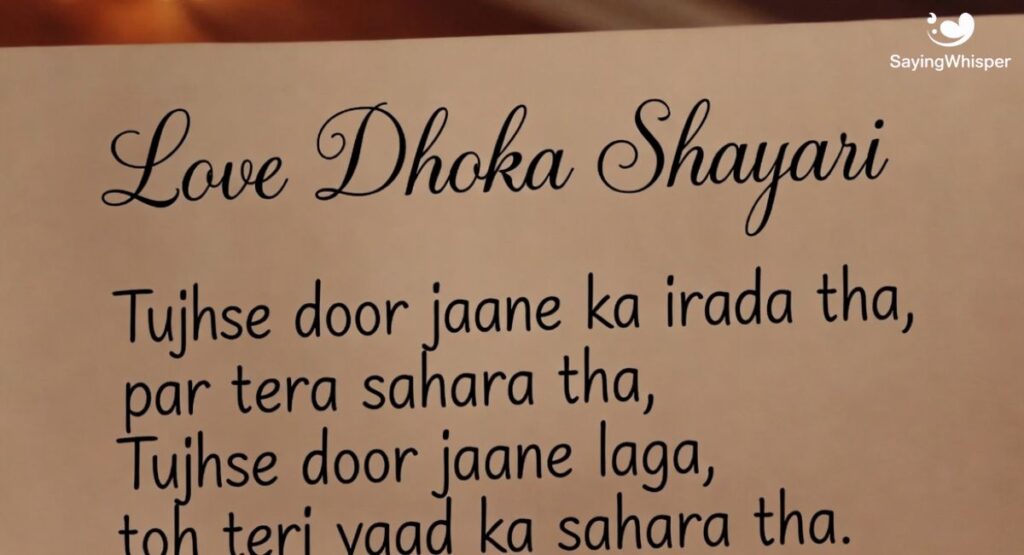 SayingWhisper
Love Dhoka Shayari
Tujhse door jaane ka irada tha,
par tera sahara tha,
Tujhse door jaane laga,
toh teri yaad ka sahara tha.